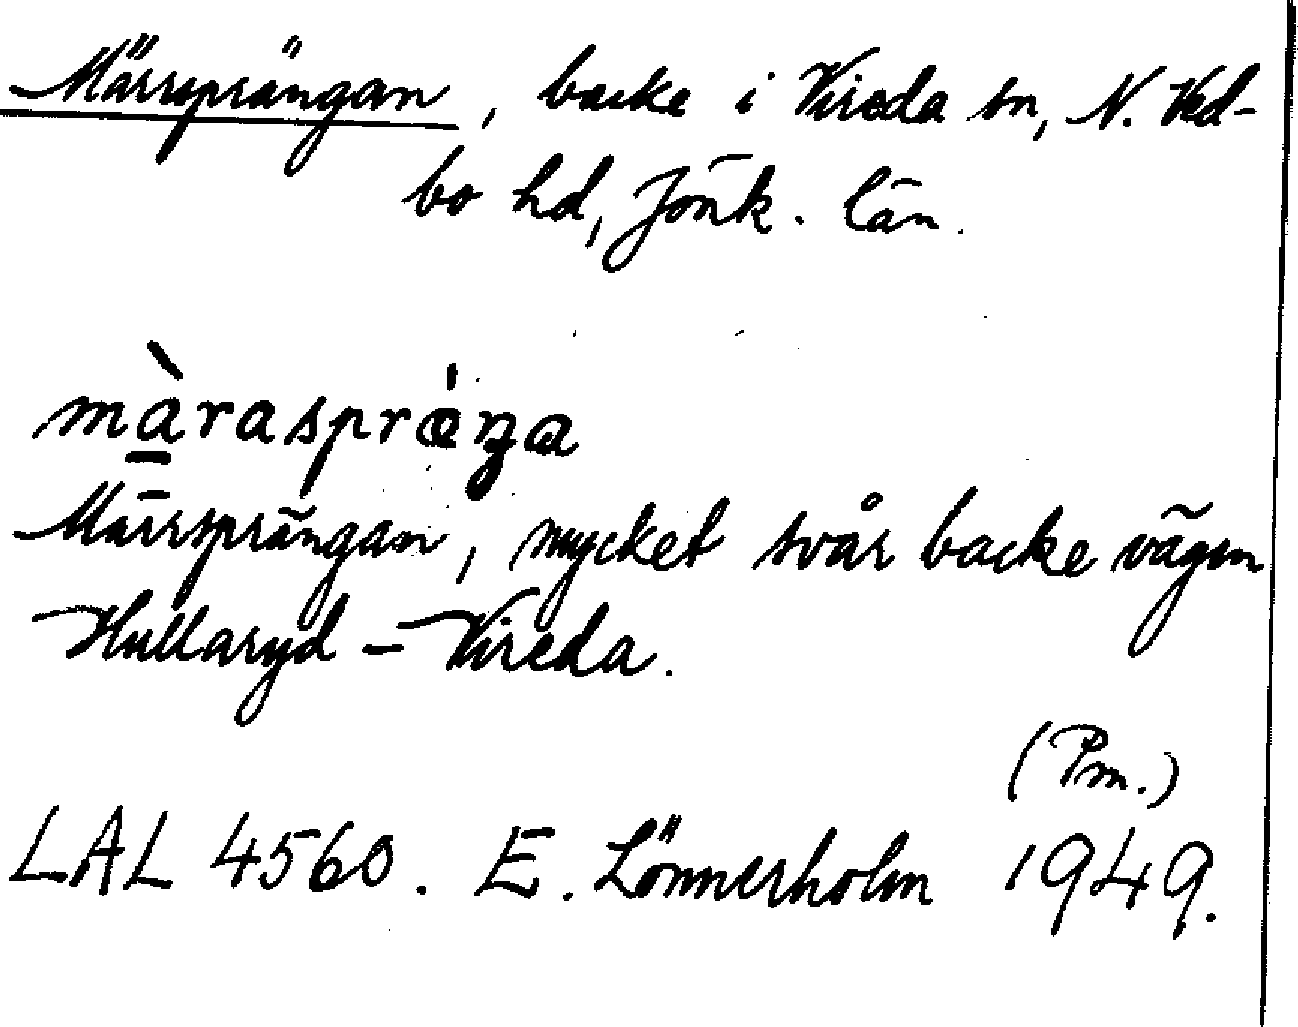 Märrsprängan, backe i Vireda sn, N. Ved-
bo hd, Jönk. län.
märaspræŋa
Märrsprängan, mycket svår backe vägen
Hullaryd – Vireda.
(Pm.)
LAL 4560. E. Lönnerholm 1949.